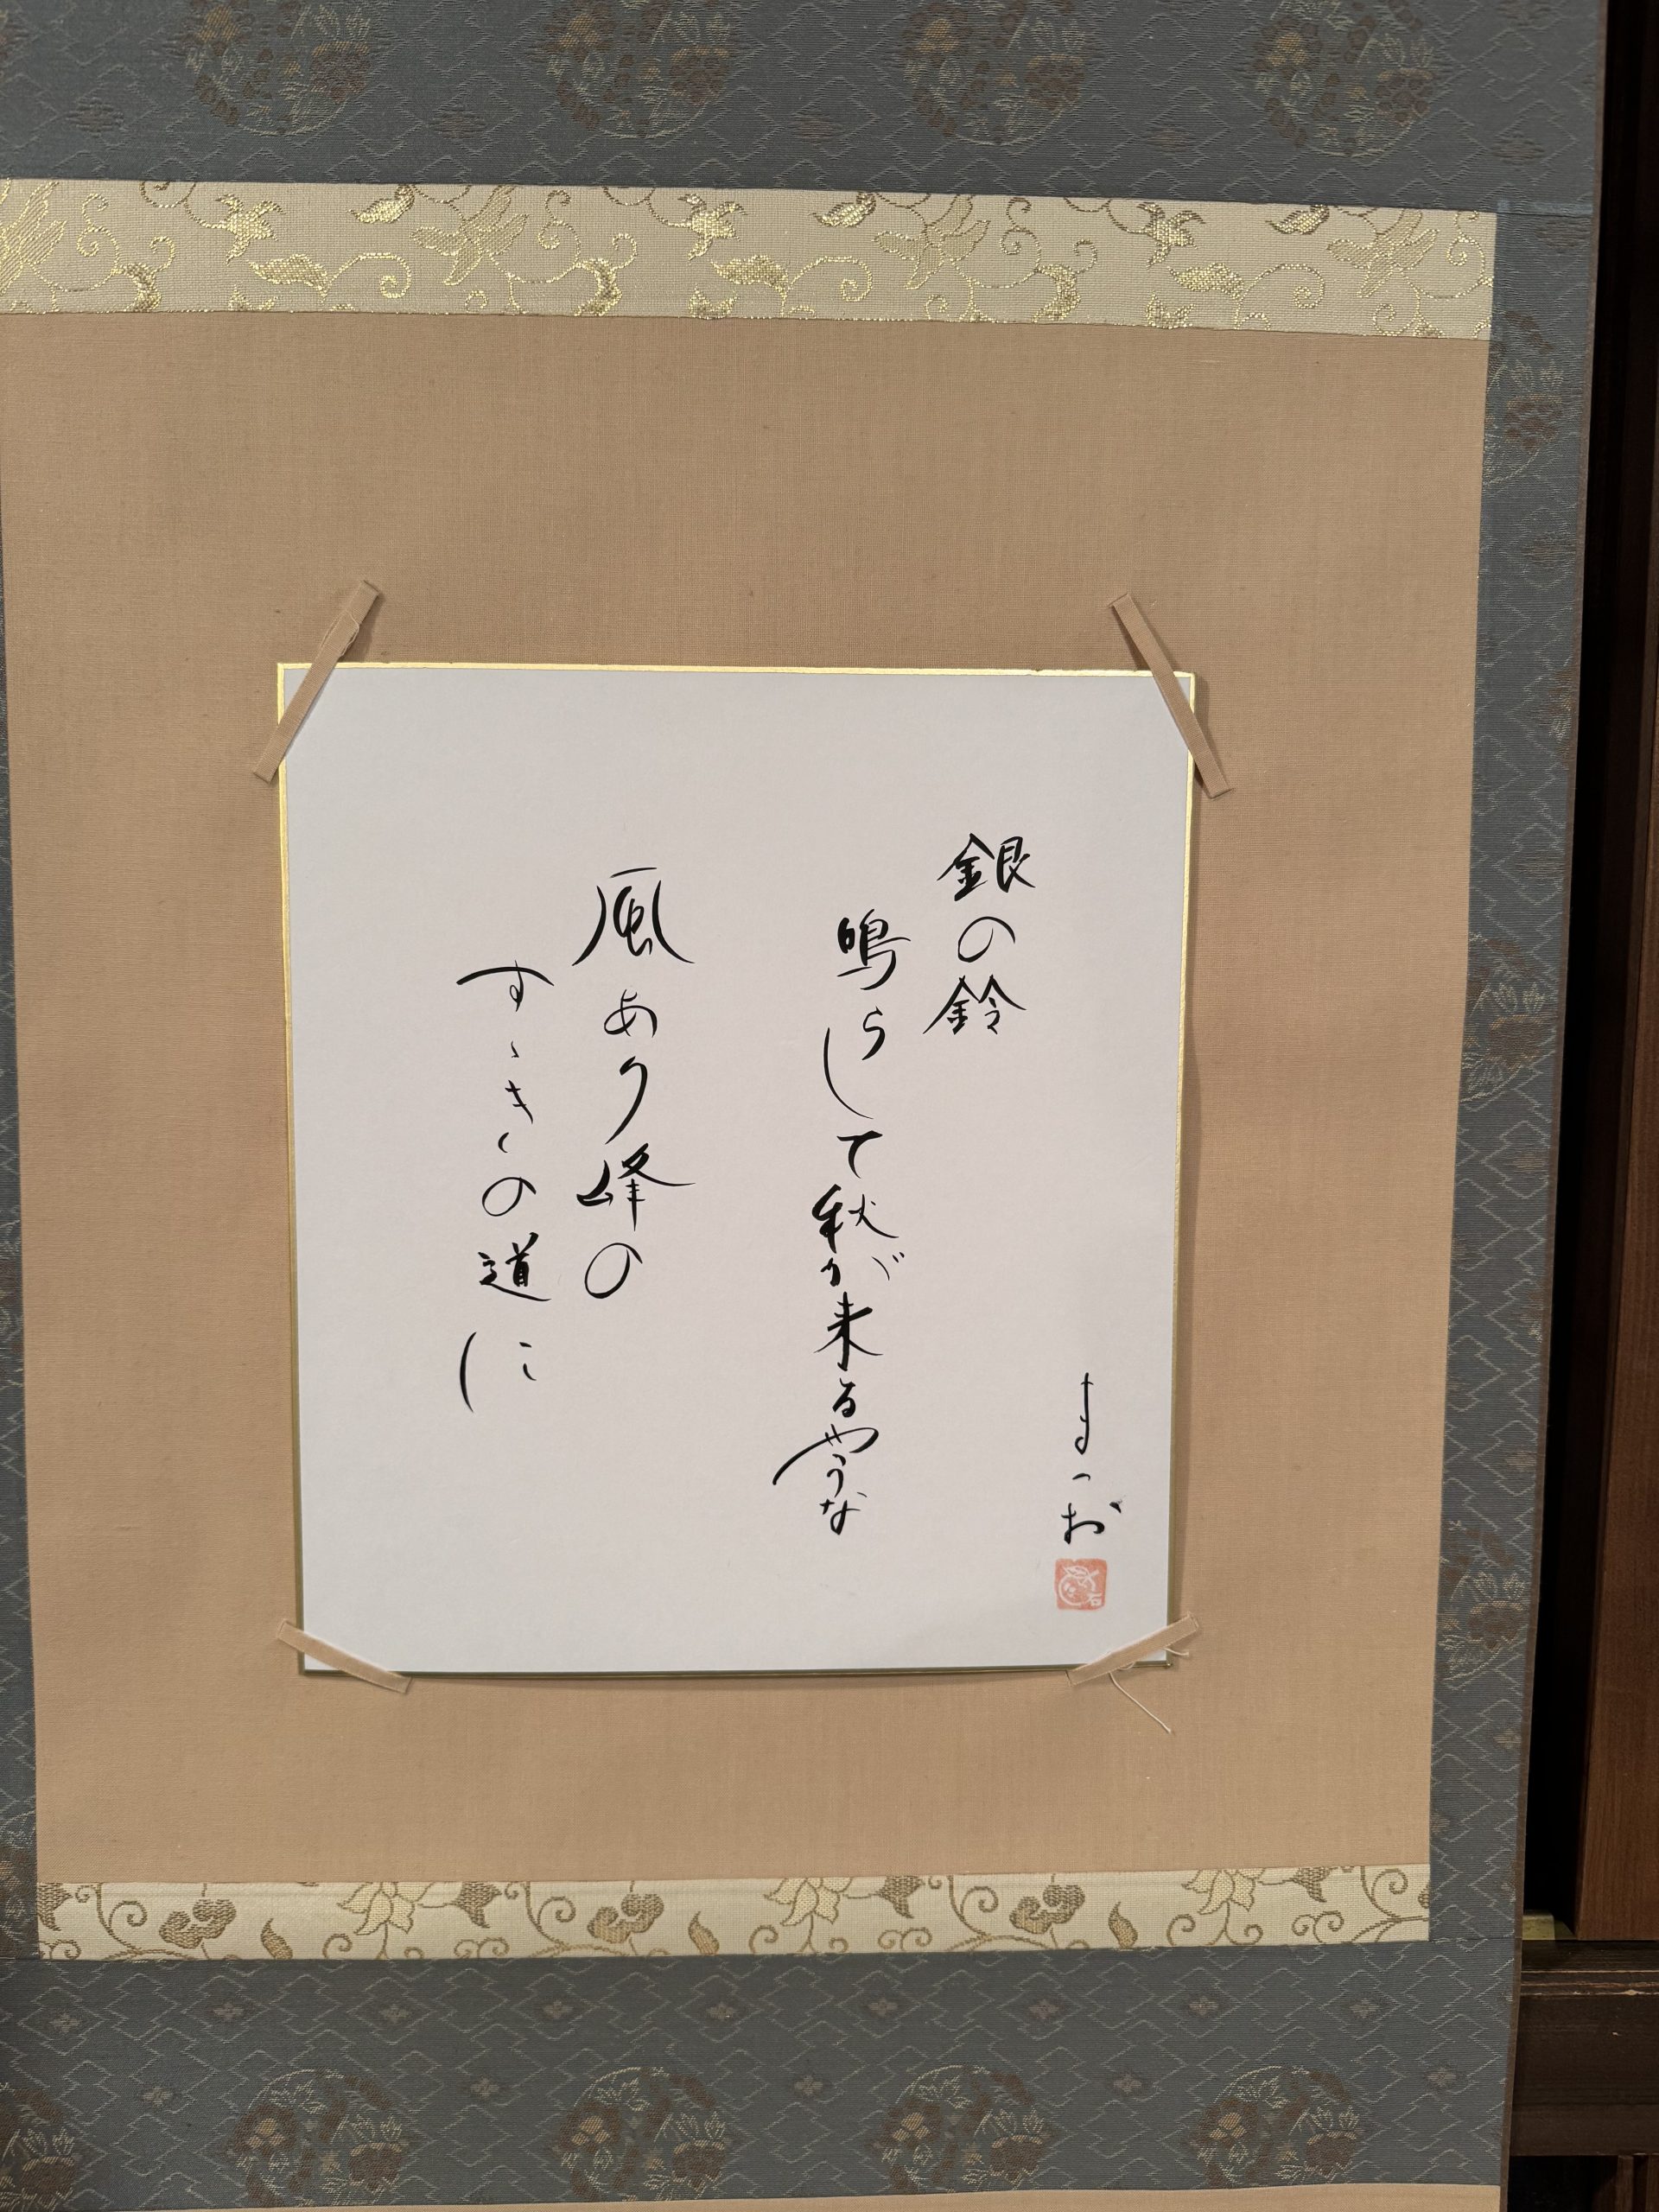 まつお
銀の鈴
鳴らして秋が来るやうな
風あり峰の
すゝきの道に